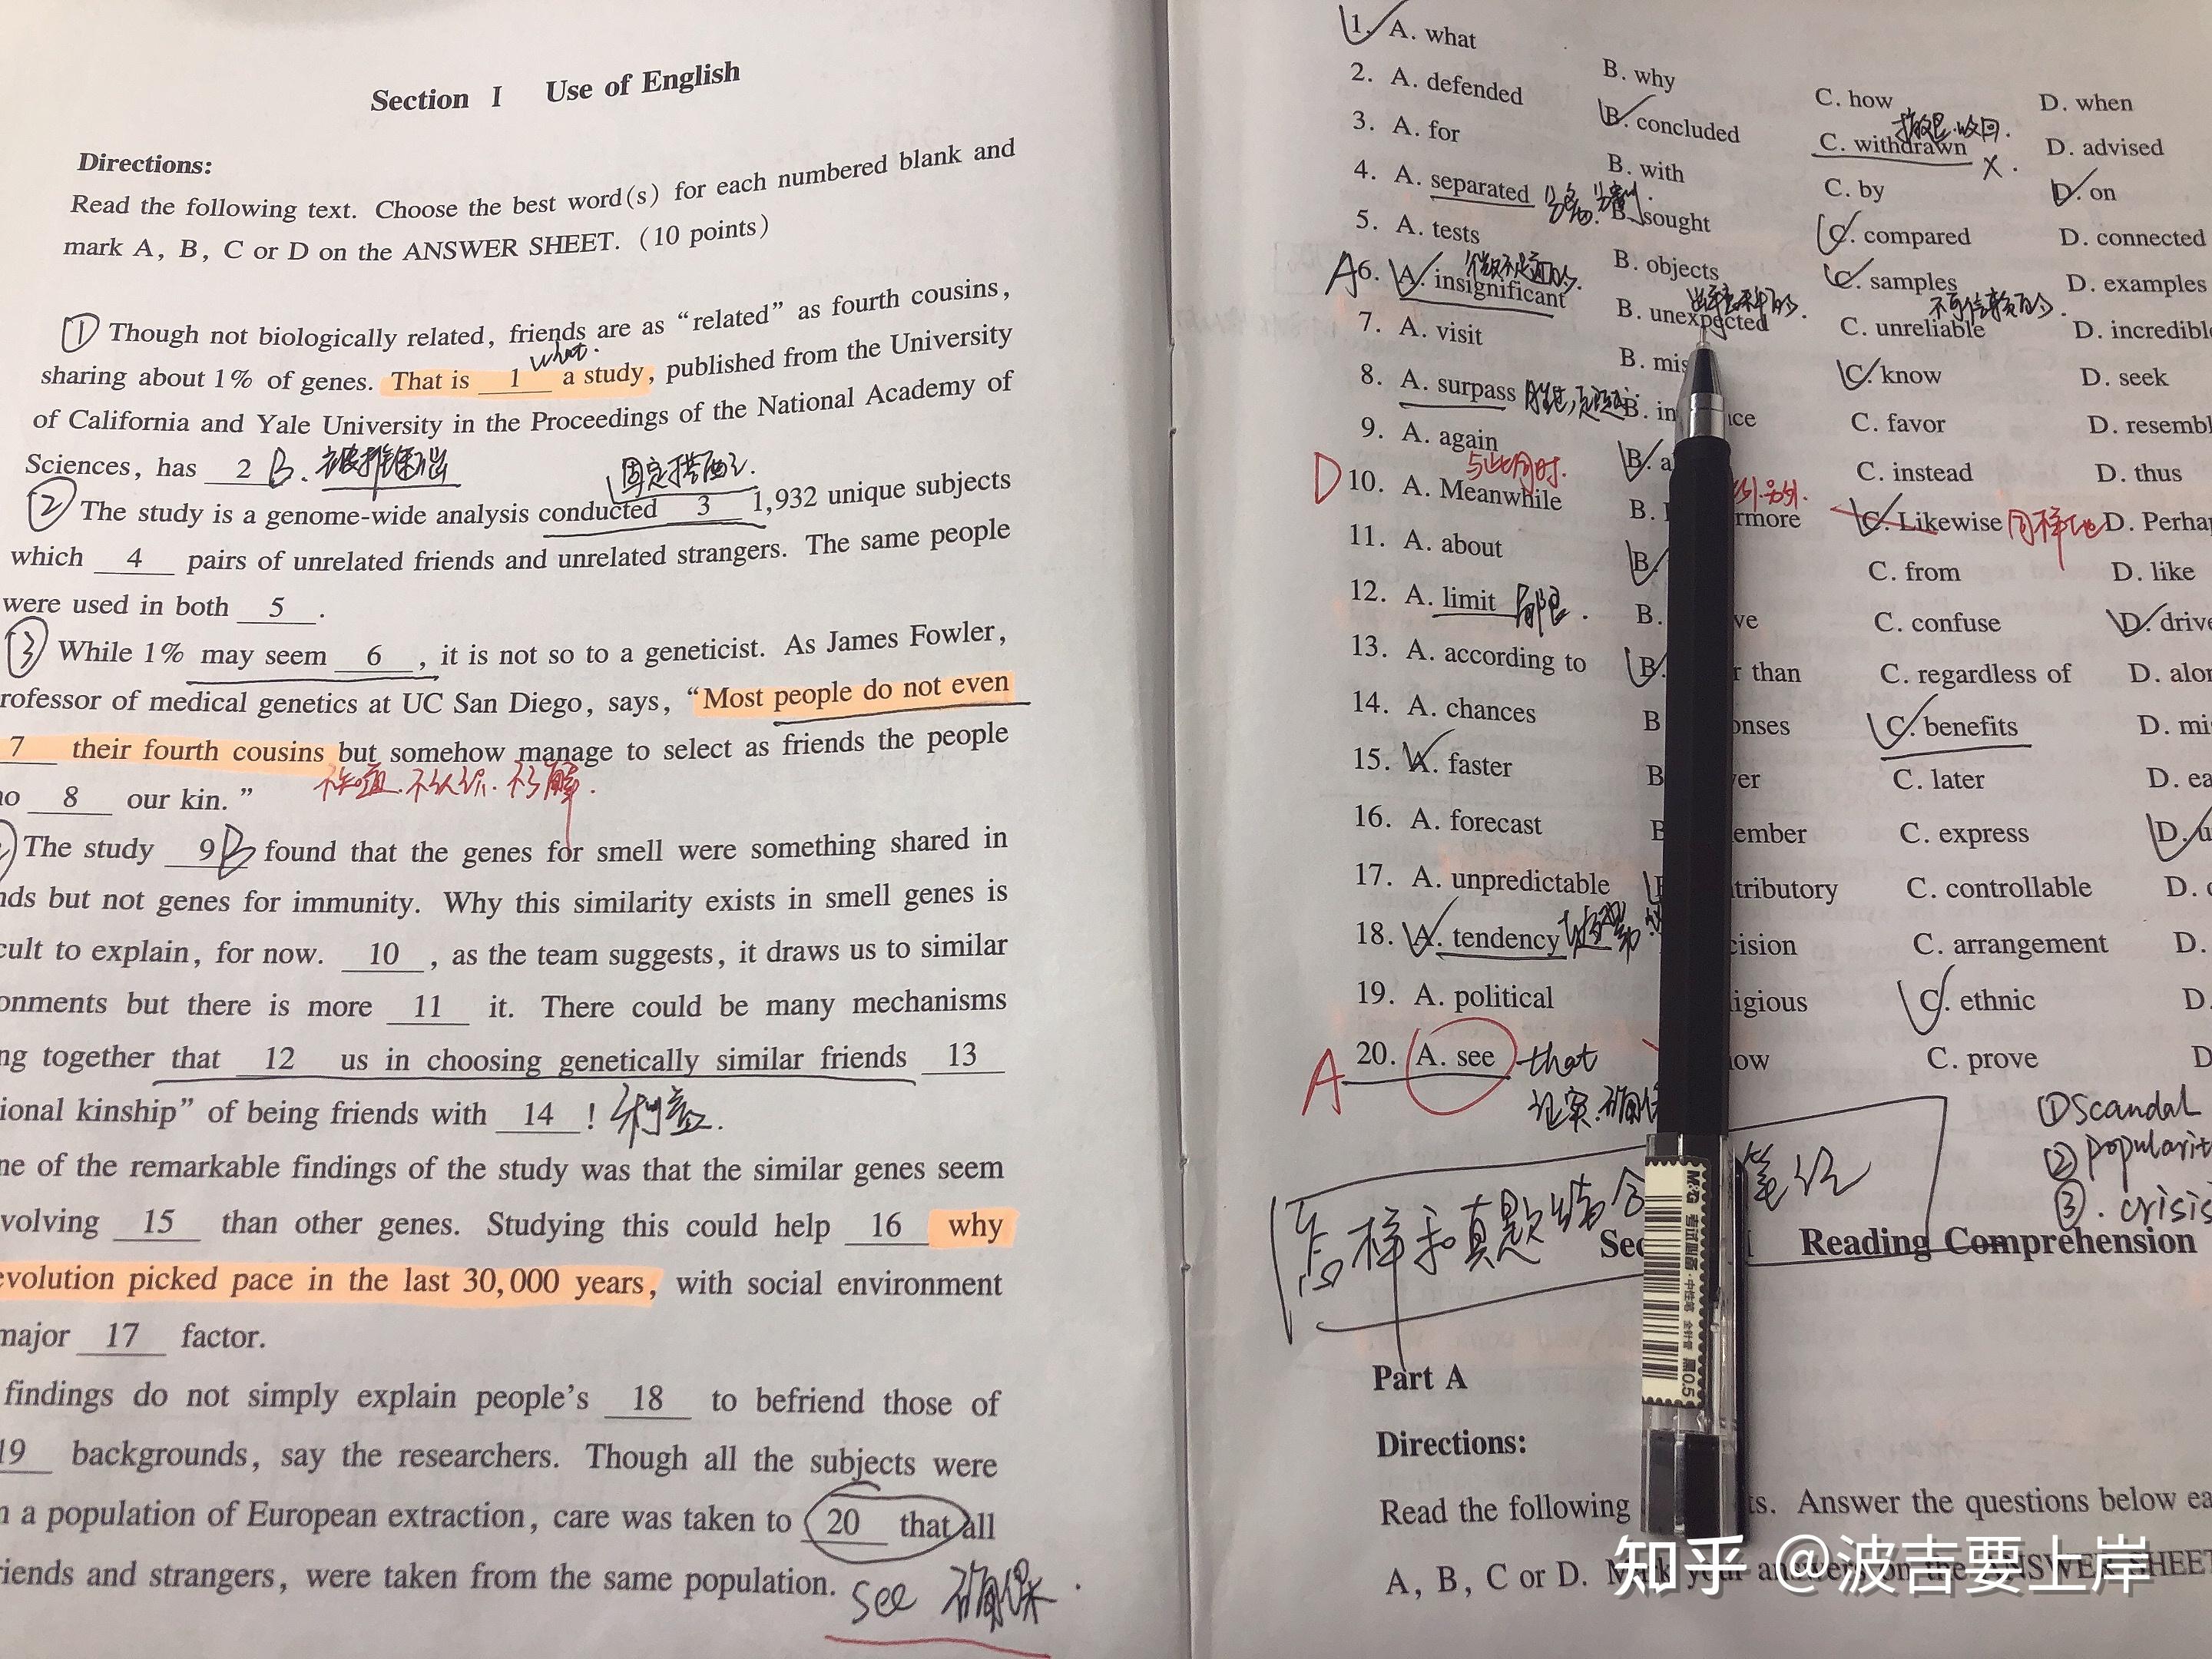 Section I Use of English
Directions:
Read the following text. Choose the best word(s) for each numbered blank and
mark A, B, C or D on the ANSWER SHEET. (10 points)
① Though not biologically related, friends are as “related” as fourth cousins,
what.
sharing about 1% of genes. That is 1 a study, published from the University
of California and Yale University in the Proceedings of the National Academy of
Sciences, has 2 B.
固定搭配
② The study is a genome-wide analysis conducted 3 1,932 unique subjects
which 4 pairs of unrelated friends and unrelated strangers. The same people
were used in both 5 .
③ While 1% may seem 6 , it is not so to a geneticist. As James Fowler,
rofessor of medical genetics at UC San Diego, says, “Most people do not even
7 their fourth cousins but somehow manage to select as friends the people
不认识.不了解.
ho 8 our kin.”
The study 9 B found that the genes for smell were something shared in
nds but not genes for immunity. Why this similarity exists in smell genes is
cult to explain, for now. 10 , as the team suggests, it draws us to similar
onments but there is more 11 it. There could be many mechanisms
ng together that 12 us in choosing genetically similar friends 13
ional kinship” of being friends with 14 ! 利益.
ne of the remarkable findings of the study was that the similar genes seem
volving 15 than other genes. Studying this could help 16 why
evolution picked pace in the last 30,000 years, with social environment
major 17 factor.
findings do not simply explain people’s 18 to befriend those of
19 backgrounds, say the researchers. Though all the subjects were
n a population of European extraction, care was taken to 20 that all
riends and strangers, were taken from the same population.
see 确保.
1. A. what B. why C. how D. when
撤退.收回.
2. A. defended B. concluded C. withdrawn D. advised
X.
3. A. for B. with C. by D. on
4. A. separated B. sought C. compared D. connected
5. A. tests B. objects C. samples D. examples
微不足道的.
A 6. A. insignificant B. unexpected C. unreliable D. incredibl
7. A. visit B. mis C. know D. seek
8. A. surpass B. in ce C. favor D. resembl
9. A. again B. a C. instead D. thus
与此同时.
D 10. A. Meanwhile B. rmore C. Likewise 同样地 D. Perha
11. A. about B. C. from D. like
12. A. limit 局限. B. ve C. confuse D. drive
13. A. according to B. r than C. regardless of D. alon
14. A. chances B onses C. benefits D. mi
15. A. faster B er C. later D. ea
16. A. forecast B ember C. express D. u
17. A. unpredictable tributory C. controllable D.
18. A. tendency cision C. arrangement D.
19. A. political igious C. ethnic D.
A 20. A. see that how C. prove D
证实.确保
①Scandal
②popularit
③.crisis
怎样和真题结合 笔记
Sec I Reading Comprehension
Part A
Directions:
Read the following ts. Answer the questions below ea
A, B, C or D. Mark your answers on the ANSWER SHEET
M&G 考试必备·中性笔 全针管 黑0.5
知乎 @波吉要上岸